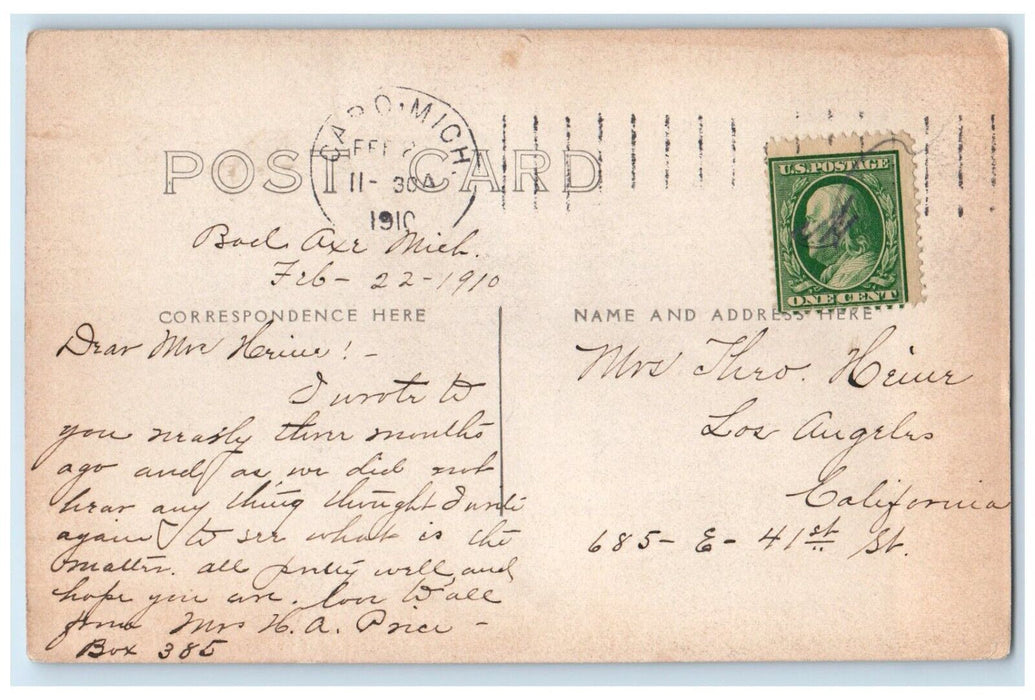 POST CARD
CARO, MICH.
FEB 2
11-30A
1910
U.S. POSTAGE
ONE CENT
Bad Axe Mich.
Feb - 22 - 1910
CORRESPONDENCE HERE
Dear Mrs Heiner! -
I wrote to
you nearly three months
ago and as we did not
hear any thing thought I write
again to see what is the
matter. all pretty well and
hope you are. love to all
from Mrs H. A. Price -
Box 385
NAME AND ADDRESS HERE
Mrs Theo. Heiner
Los Angeles
California
685 - E - 41st St.